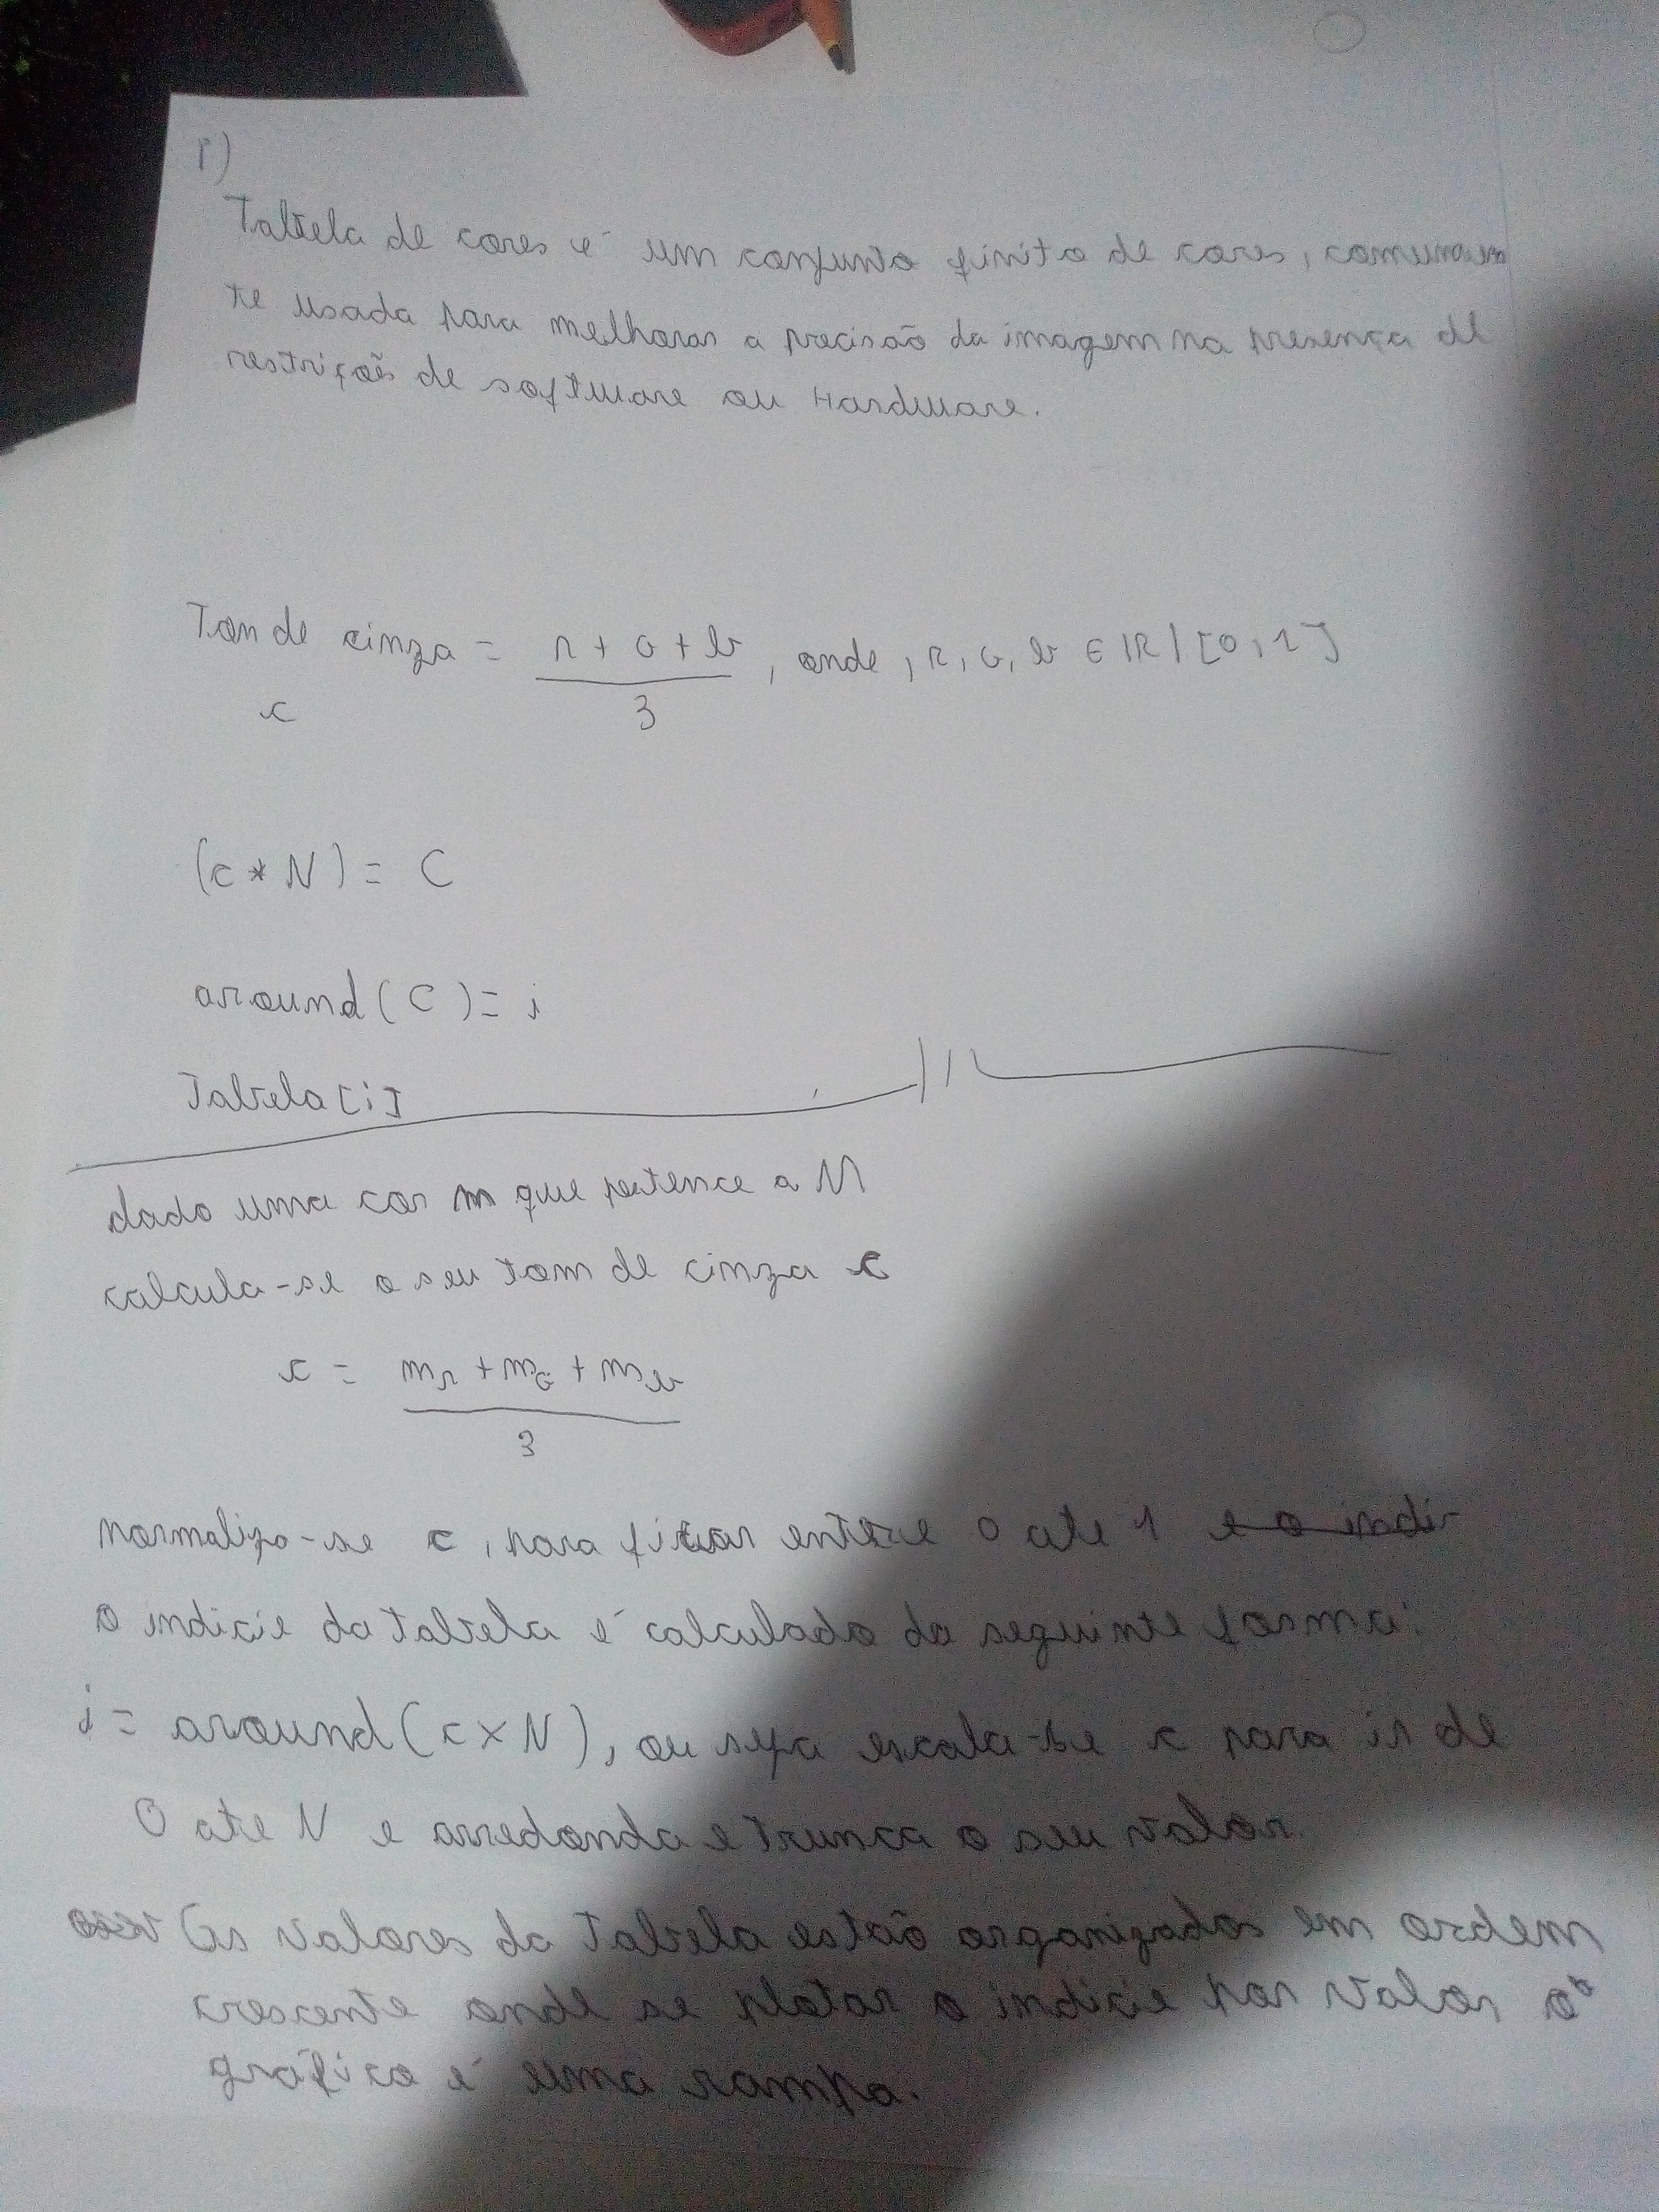 1)
Tabela de cores é um conjunto finito de cores, comumumen
te usada para melhorar a precisão da imagem na presença de
restrições de software ou Hardware.
Ton de cinza = r + G + b / 3 , onde , r, G, b ∈ IR | [0,1]
c
(c * N) = C
around(C) = i
Tabela[i]
dado uma cor m que petence a M
calcula-se o seu tom de cinza c
c = mr + mG + mb / 3
normaliza-se c, para ficar entre 0 ate 1
o indicie da tabela é calculado da seguinte forma:
i = around(c x N), ou seja escala-se c para ir de
0 ate N e arredonda e trunca o seu valor.
Os valores da tabela estão organizados em ordem
crescente onde se plotar o indicie por valor o
gráfico é uma rampa.